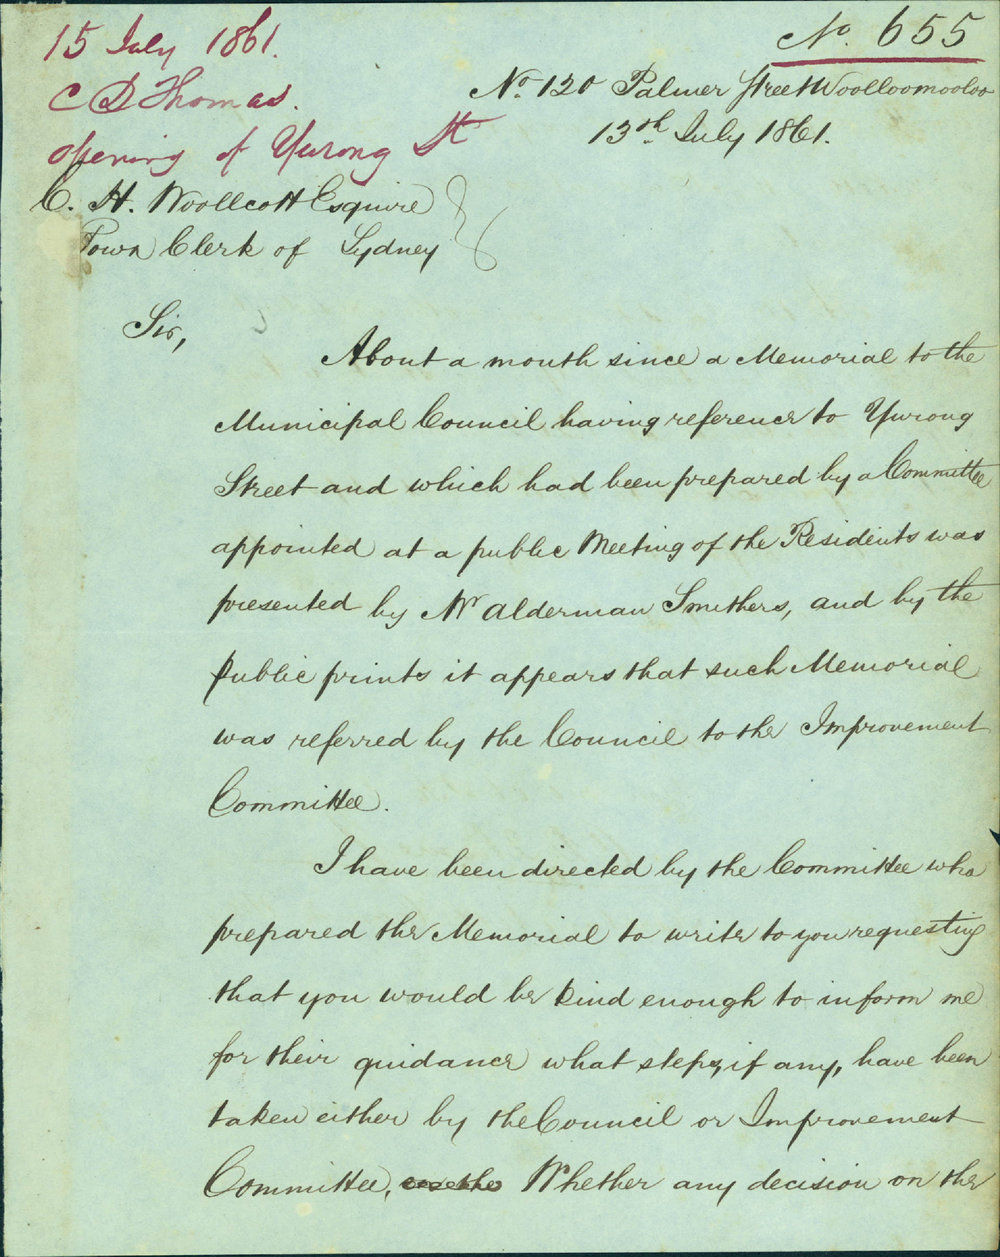 15 July 1861.
C D Thomas.
opening of Yurong St
No. 655
No. 120 Palmer Street Woolloomooloo
13th. July 1861.
C. H. Woollcott Esquire
Town Clerk of Sydney
Sir,
About a month since a Memorial to the
Municipal Council having reference to Yurong
Street and which had been prepared by a Committee
appointed at a public Meeting of the Residents was
presented by Mr Alderman Smithers, and by the
public prints it appears that such Memorial
was referred by the Council to the Improvement
Committee.
I have been directed by the Committee who
prepared the Memorial to write to you requesting
that you would be kind enough to inform me
for their guidance what steps, if any, have been
taken either by the Council or Improvement
Committee, Whether any decision on the